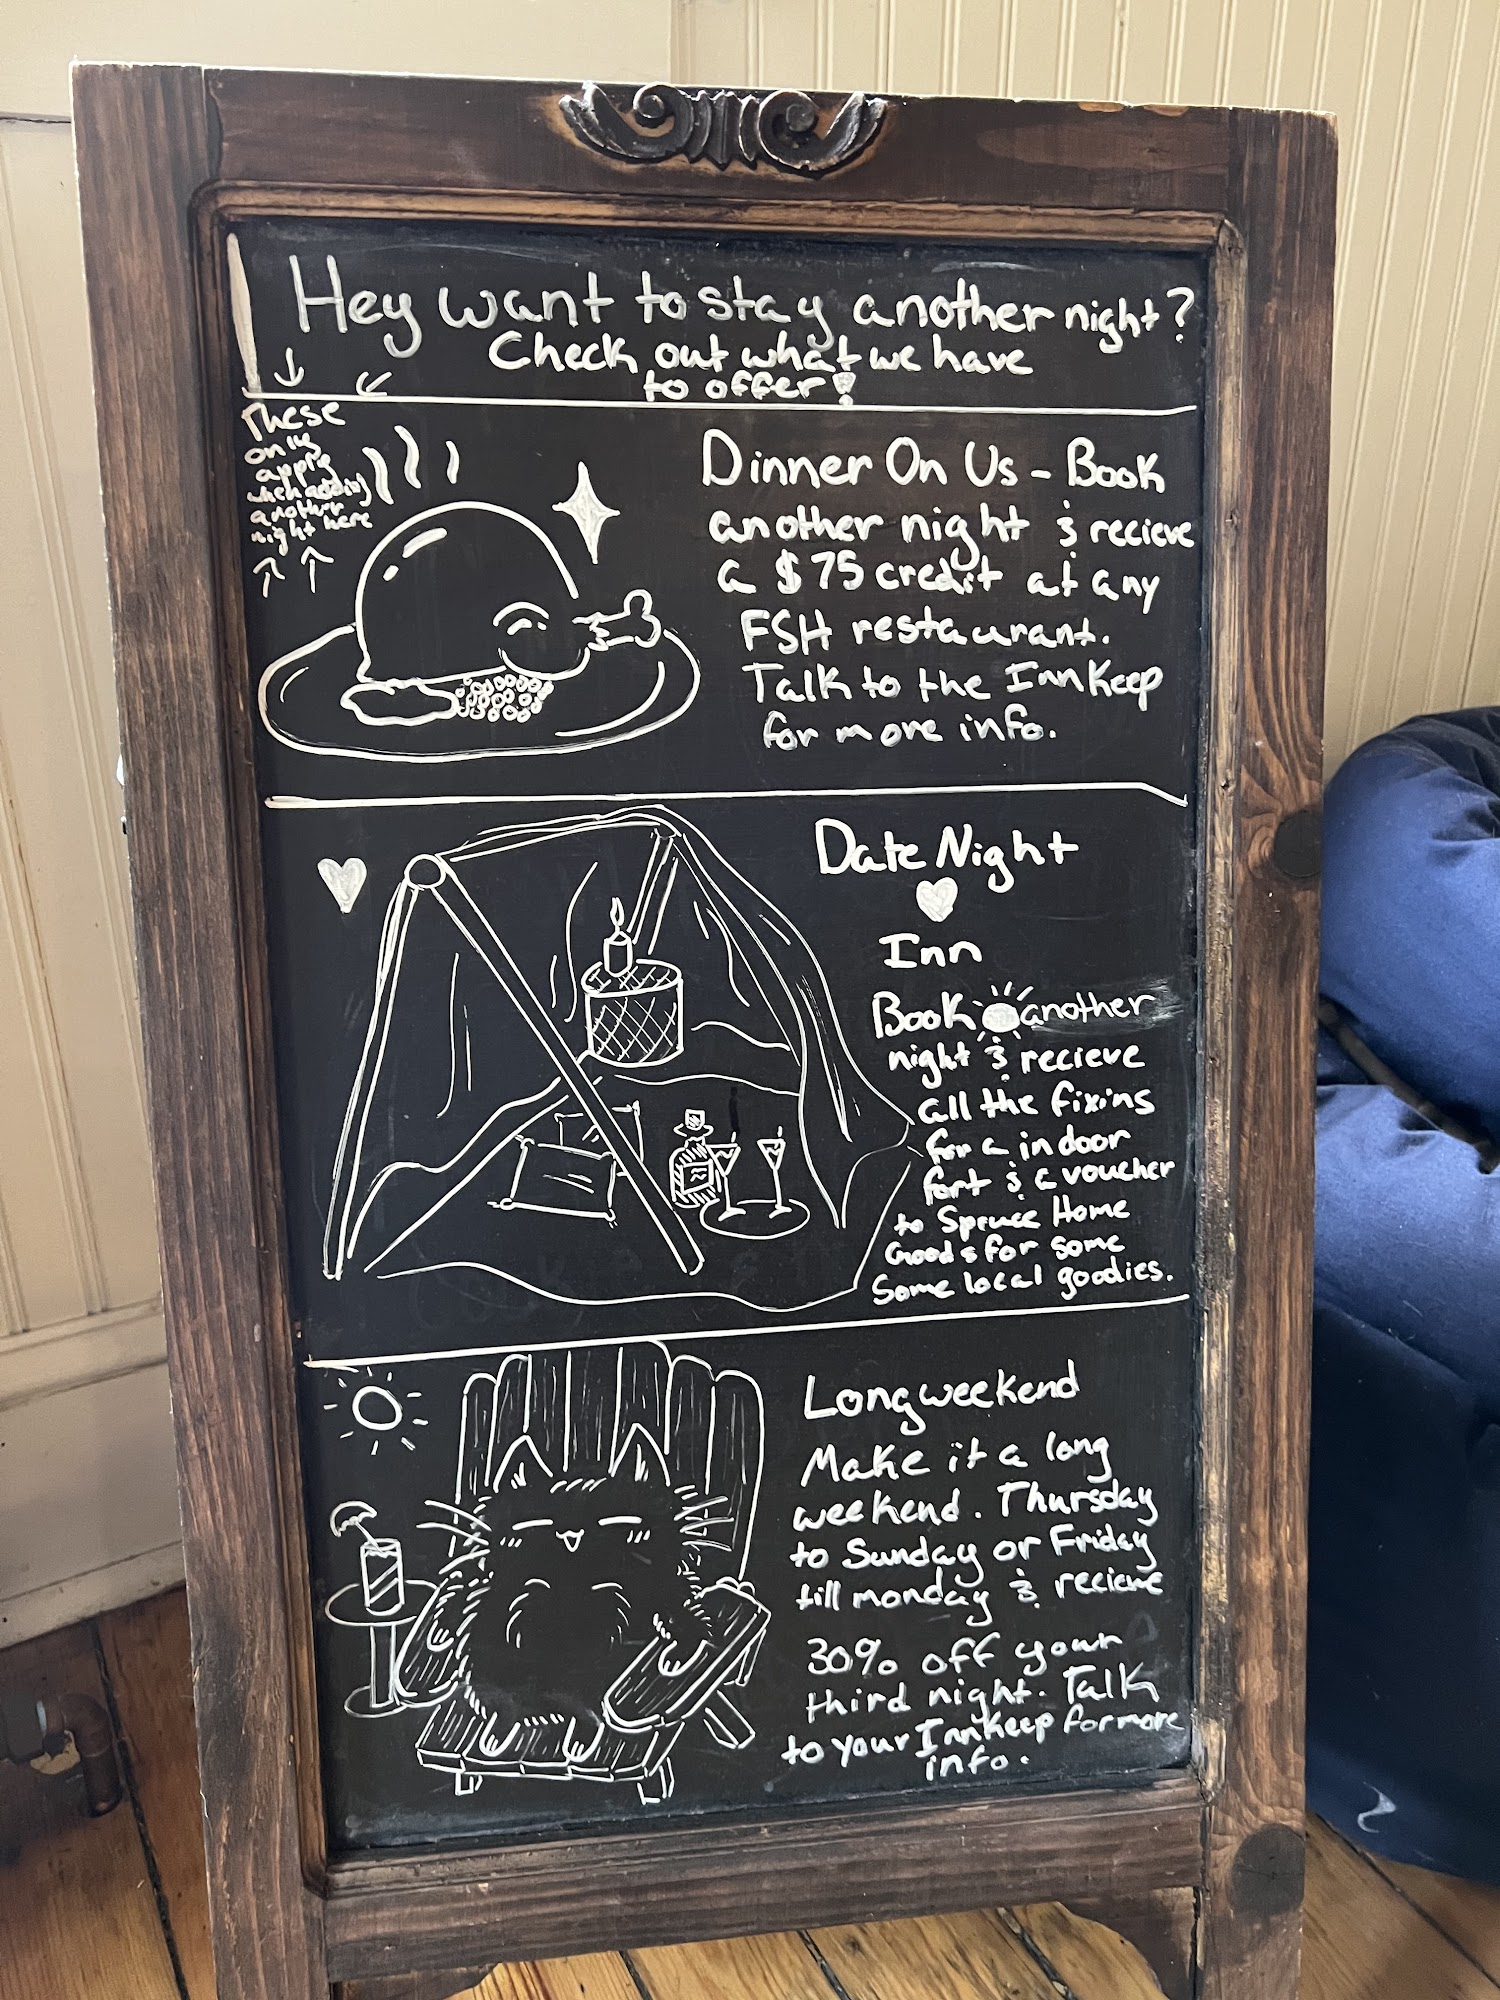 Hey want to stay another night?
Check out what we have
to offer!
These
only
apply
when adding
another
night here
Dinner On Us - Book
another night & recieve
a $75 credit at any
FSH restaurant.
Talk to the InnKeep
for more info.
Date Night
Inn
Book another
night & recieve
all the fixins
for a indoor
fort & a voucher
to Spruce Home
Goods for some
some local goodies.
Long weekend
Make it a long
weekend. Thursday
to Sunday or Friday
till monday & recieve
30% off your
third night. Talk
to your InnKeep for more
info.